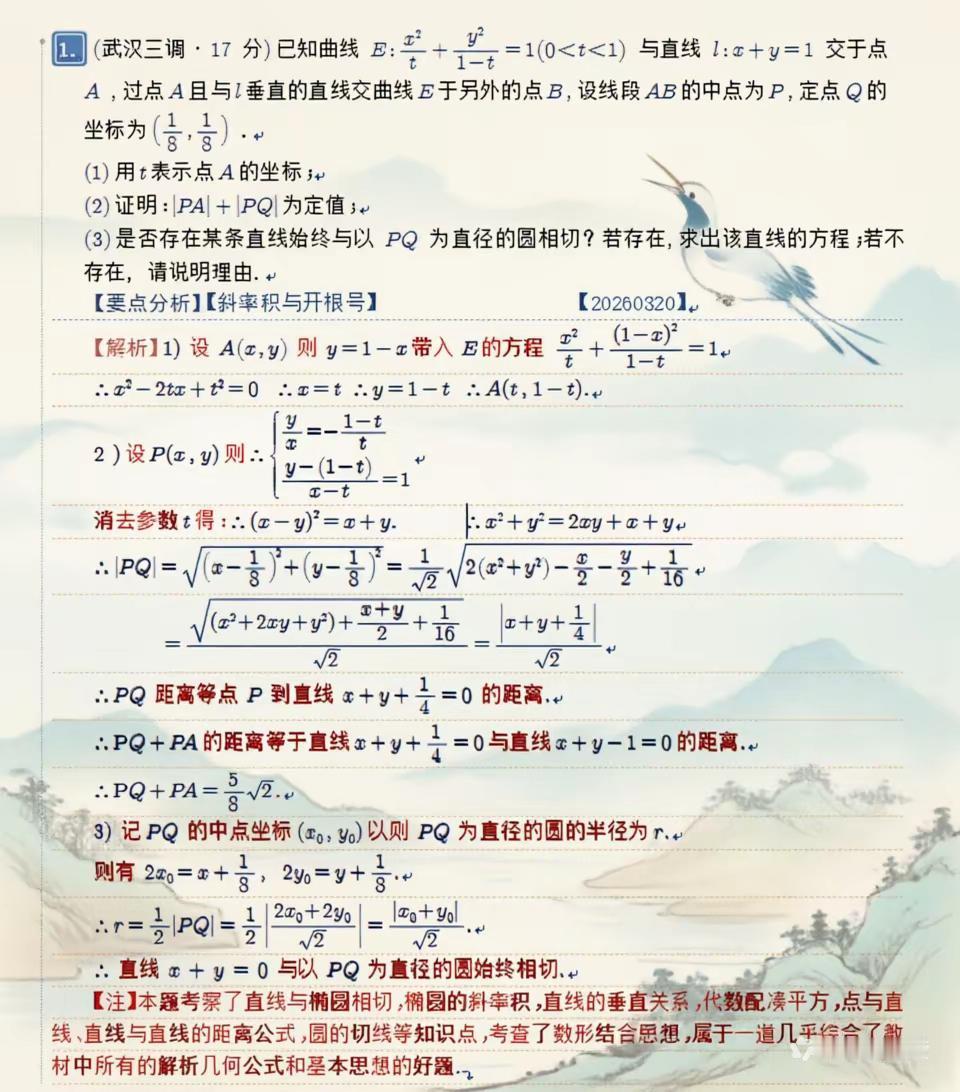 1. (武汉三调·17 分)已知曲线 E:x²/t + y²/(1-t) =1(0<t<1) 与直线 l:x+y=1 交于点
A ,过点A且与l垂直的直线交曲线E于另外的点B,设线段AB的中点为P,定点Q的
坐标为(1/8,1/8) .
(1)用t表示点A的坐标;
(2)证明:|PA|+|PQ|为定值;
(3)是否存在某条直线始终与以 PQ 为直径的圆相切?若存在,求出该直线的方程;若不
存在, 请说明理由.
【要点分析】【斜率积与开根号】 【20260320】
【解析】1) 设 A(x,y) 则 y=1-x带入 E的方程 x²/t + (1-x)²/(1-t) =1
∴x²-2tx+t²=0 ∴x=t ∴y=1-t ∴A(t,1-t).
2 )设P(x,y)则∴{y/x=-(1-t)/t
(y-(1-t))/(x-t)=1
消去参数t得:∴(x-y)²=x+y. ∴x²+y²=2xy+x+y
∴|PQ|=√((x-1/8)²+(y-1/8)²)=1/√2 √(2(x²+y²)-x/2-y/2+1/16)
=√((x²+2xy+y²)+(x+y)/2+1/16)/√2=|x+y+1/4|/√2
∴PQ 距离等点 P 到直线 x+y+1/4=0 的距离.
∴PQ+PA的距离等于直线x+y+1/4=0与直线x+y-1=0的距离.
∴PQ+PA=5/8√2.
3) 记PQ 的中点坐标(x₀,y₀)以则 PQ 为直径的圆的半径为r.
则有 2x₀=x+1/8, 2y₀=y+1/8.
∴r=1/2|PQ|=1/2|(2x₀+2y₀)/√2|=|x₀+y₀|/√2.
∴ 直线 x + y = 0 与以 PQ 为直径的圆始终相切.
【注】本题考察了直线与椭圆相切,椭圆的斜率积,直线的垂直关系,代数配凑平方,点与直
线、直线与直线的距离公式,圆的切线等知识点,考查了数形结合思想,属于一道几乎综合了教
材中所有的解析几何公式和基本思想的好题.